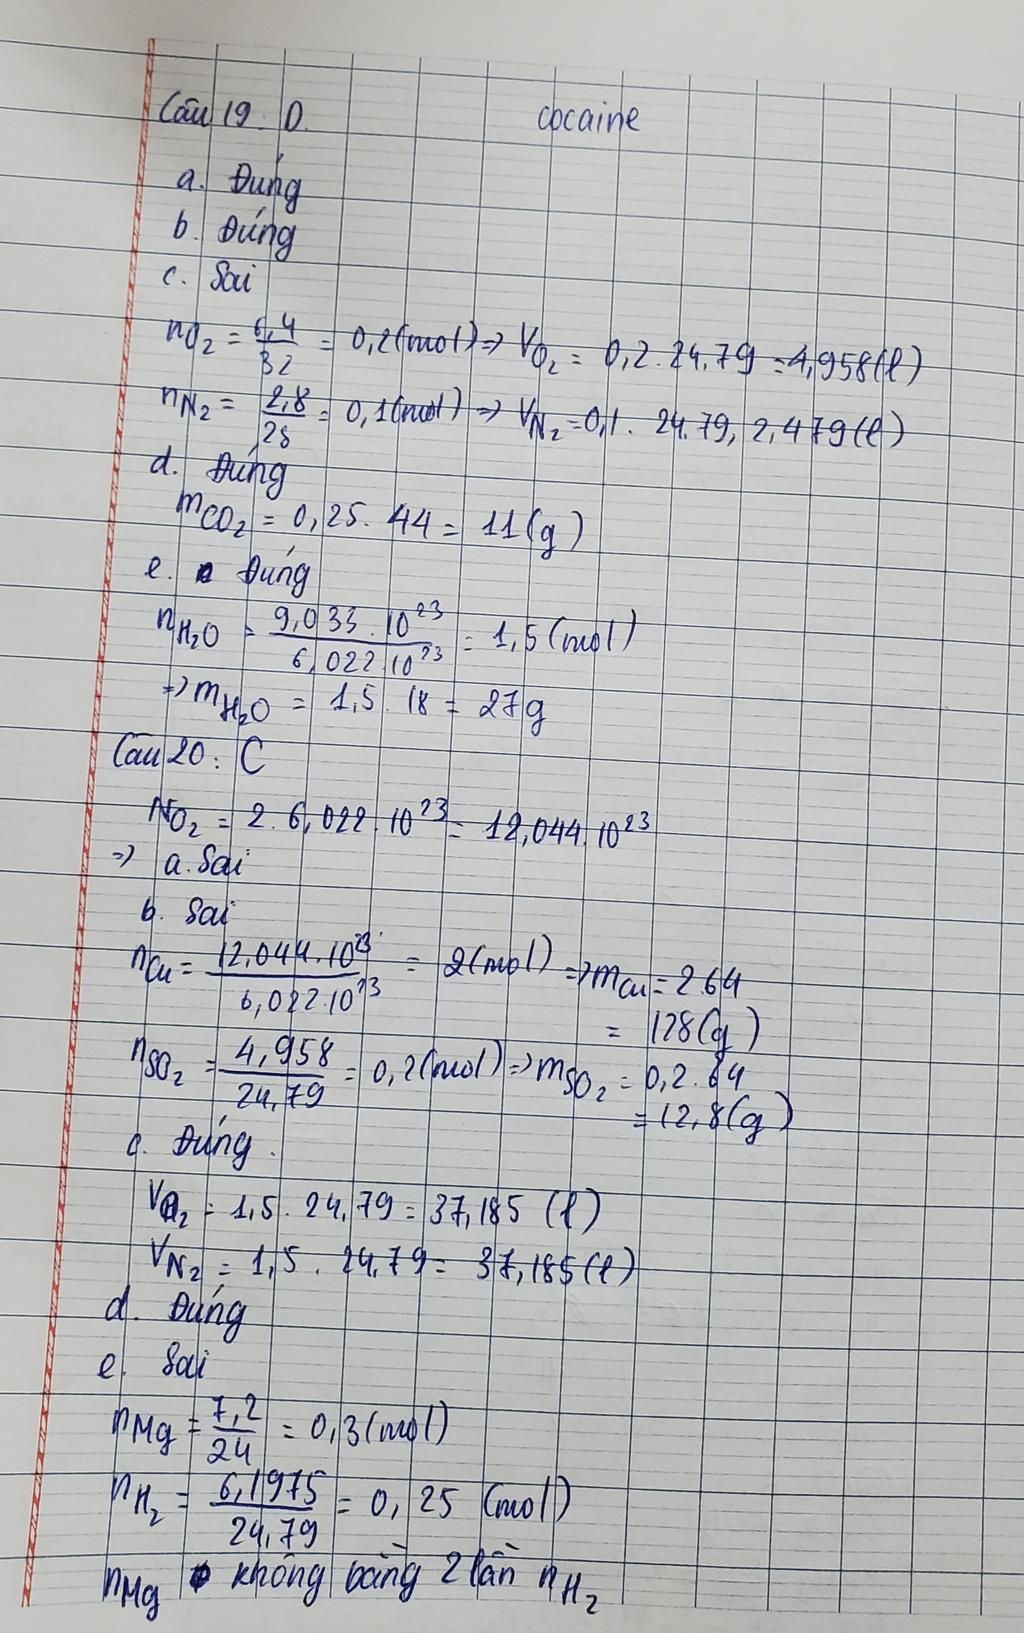 Câu 19. D. cocaine
a. Đúng
b. Đúng
c. Sai
nO₂ = 6,4/32 = 0,2(mol) => VO₂ = 0,2.24,79 = 4,958(l)
nN₂ = 2,8/28 = 0,1(mol) => VN₂ = 0,1. 24.79, 2,479(l)
d. Đúng
mCO₂ = 0,25. 44 = 11(g)
e. Đúng
nH₂O = 9,033.10²³/6,022.10²³ = 1,5(mol)
=> mH₂O = 1,5. 18 = 27g
Câu 20: C
NO₂ = 2. 6,022.10²³ = 12,044.10²³
=> a. Sai
b. Sai
nCu = 12,044.10²³/6,022.10²³ = 2(mol) => mCu = 2.64
= 128(g)
nSO₂ = 4,958/24,79 = 0,2(mol) => mSO₂ = 0,2.64
= 12,8(g)
c. Đúng.
VO₂ = 1,5. 24,79 = 37,185 (l)
VN₂ = 1,5. 24,79 = 37,185(l)
d. Đúng
e. Sai
nMg = 7,2/24 = 0,3(mol)
nH₂ = 6,1975/24,79 = 0,25 (mol)
nMg không bằng 2 lần nH₂